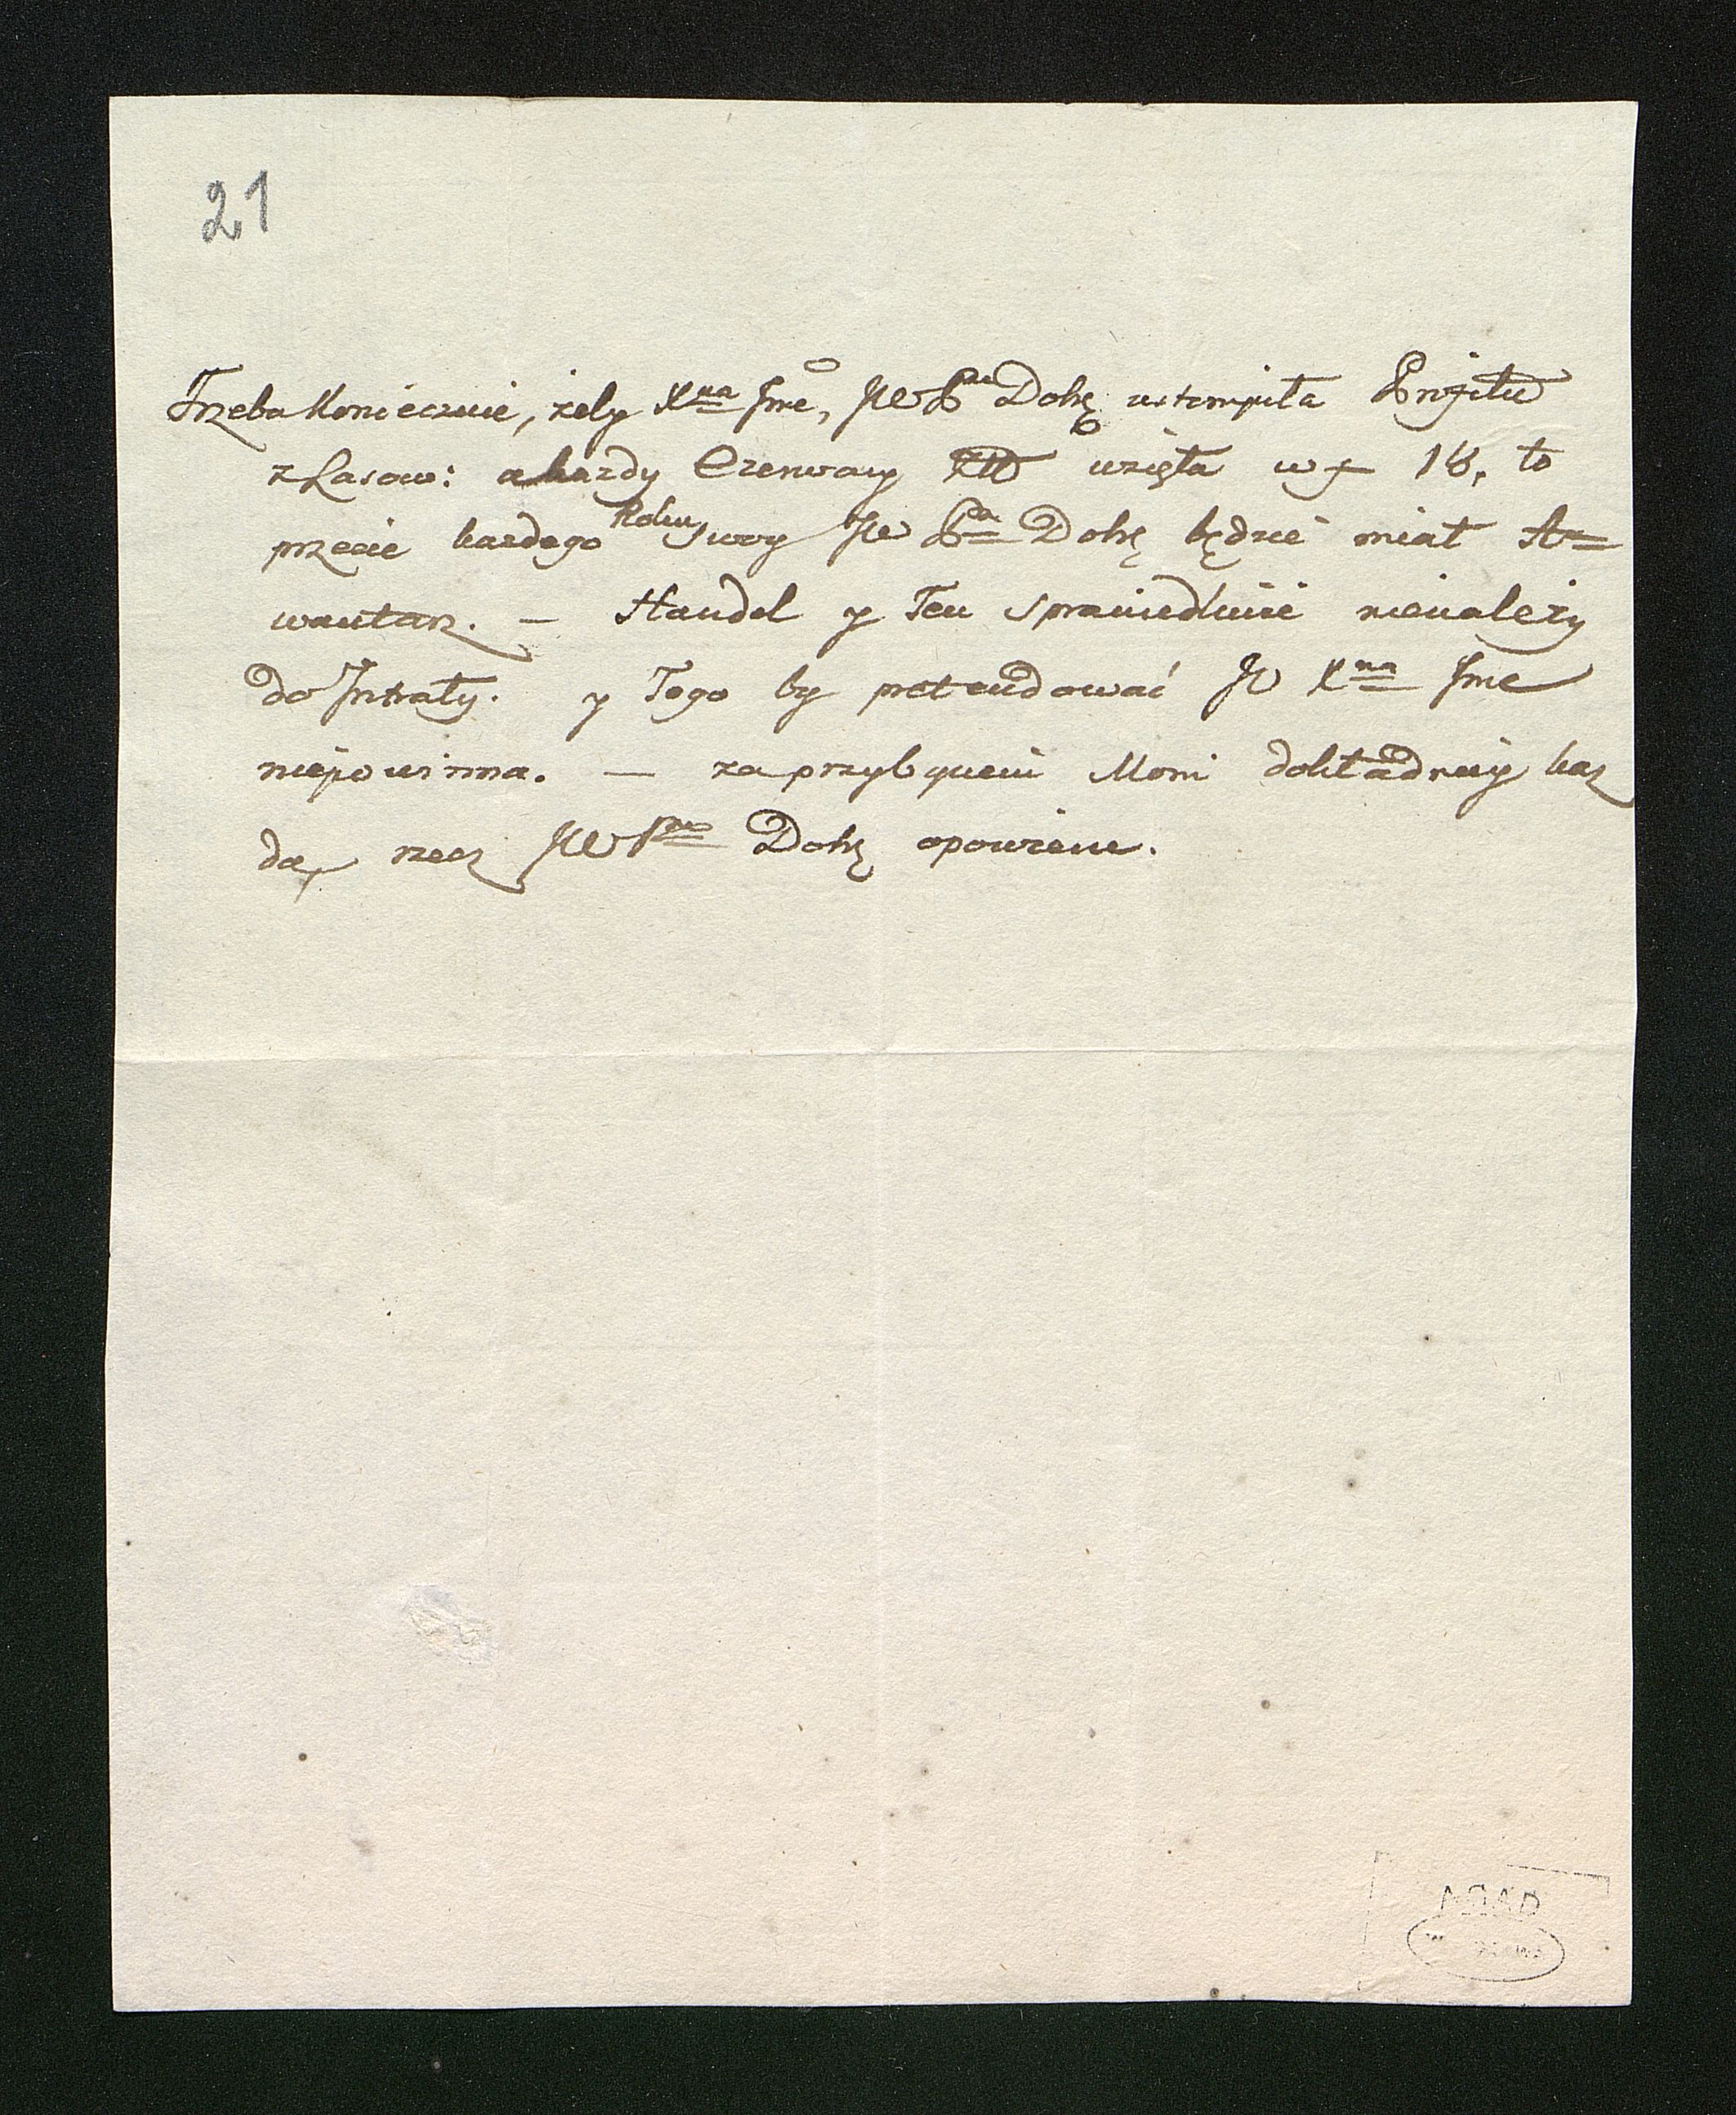 21
Trzeba Koniecznie, zeby Xna Jmć, JW Pnu Dokę ustompiła Projitu
z Lasow: a kazdy Czerwony Zł wzięta w # 18, to
przecie kazdego Roku JW Pn Dokę będzie miał A=
wantaz. — Handel y Ten sprawiedliwie nienależy
do Jntraty. y Tego by pretendować JO Xna Jmć
niepowinna. — za przybyciem Moni dokładniy kaz
dą rzecz JW Pnu Dokę opowiene.
AGAD